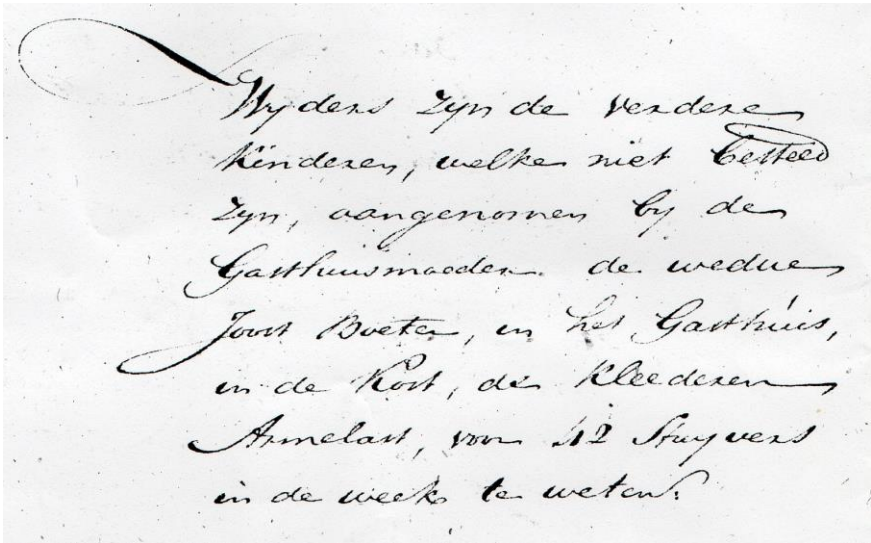 Wyders zyn de verdere
kinderen, welke niet besteed
zyn, aangenomen by de
Gasthuismoeder de weduwe
Joost Boeter, in het Gasthuis,
in de Kost, de Kleederen
Armelast, voor 42 Stuyvers
in de week te weten: